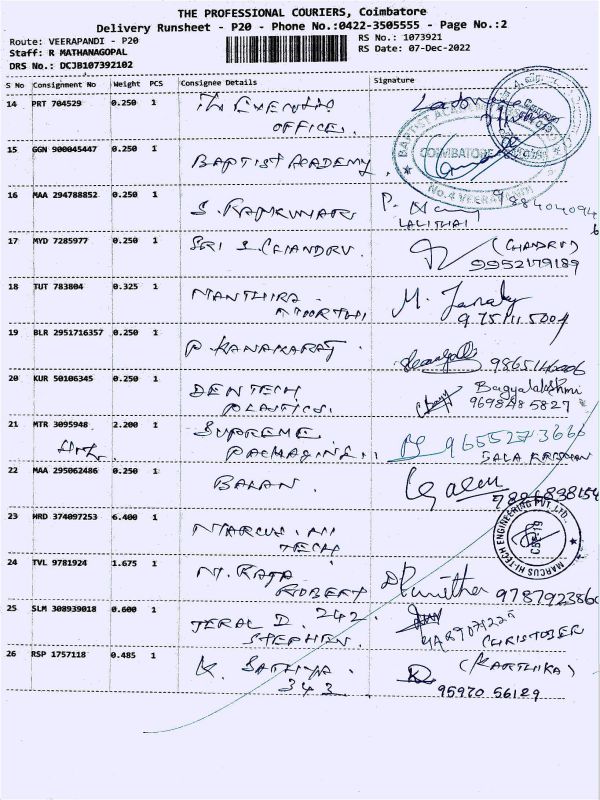 THE PROFESSIONAL COURIERS, Coimbatore
Delivery Runsheet - P20 - Phone No.:0422-3505555 - Page No.:2
Route: VEERAPANDI - P20
Staff: R MATHANAGOPAL
DRS No.: DCJB107392102
RS No.: 1073921
RS Date: 07-Dec-2022
S No Consignment No Weight PCS Consignee Details Signature
14 PRT 704529 0.250 1
OFFICE.
15 GGN 900045447 0.250 1 BAPTIST ACADEMY.
BAPTIST ACADEMY
COIMBATORE
No.4 VEERAPANDI
16 MAA 294788852 0.250 1 S. RAMKUMAR
LALITHAI
17 MYD 7285977 0.250 1 SRI S. CHANDRU. (CHANDRU)
9952179189
18 TUT 783804 0.325 1 MANTHIRA
MOORTHI
M. Janaky
19 BLR 2951716357 0.250 1 P. KANAKARAJ.
20 KUR 50106345 0.250 1 DENTECH
PLASTICS.
Bagyalakshmi
9698485827
21 MTR 3095948 2.200 1 SUPREME
PACKAGING
9655273666
BALA KRISHNAN
22 MAA 295062486 0.250 1 BALAN.
23 HRD 374097253 6.400 1 MARCUS HI
TECH
MARCUS HI-TECH ENGINEERING PVT LTD.
CBE-19
24 TVL 9781924 1.675 1 M. RAJA
ROBERT
25 SLM 308939018 0.600 1 JERAL D. 242.
STEPHEN.
CHRISTOBER
26 RSP 1757118 0.485 1 K. SATHIYA.
343
(KARTHIKA)
95970 56129